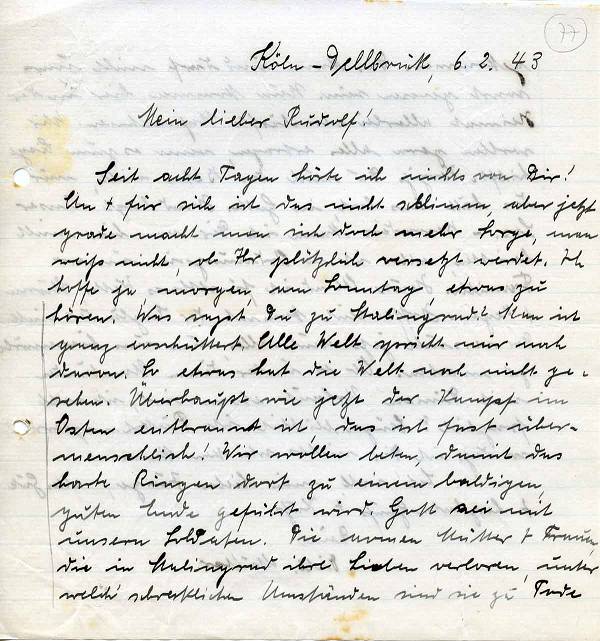 77
Köln-Dellbrück, 6. 2. 43
Mein lieber Rudolf!
Seit acht Tagen hörte ich nichts von Dir!
An + für sich ist das nicht schlimm, aber jetzt
grade macht man sich doch mehr Sorge, man
weiß nicht, ob Ihr plötzlich versetzt werdet. Ich
hoffe ja, morgen, am Sonntag, etwas zu
hören. Was sagst Du zu Stalingrad? Man ist
ganz erschüttert. Alle Welt spricht nur noch
davon. So etwas hat die Welt noch nicht ge-
sehen. Überhaupt wie jetzt der Kampf im
Osten entbrannt ist, das ist fast über-
menschlich! Wir wollen beten, damit das
harte Ringen dort zu einem baldigen,
guten Ende geführt wird. Gott sei mit
unsern Soldaten. Die armen Mütter + Frauen,
die in Stalingrad ihre Lieben verloren, unter
welch' schrecklichen Umständen sind sie zu Tode